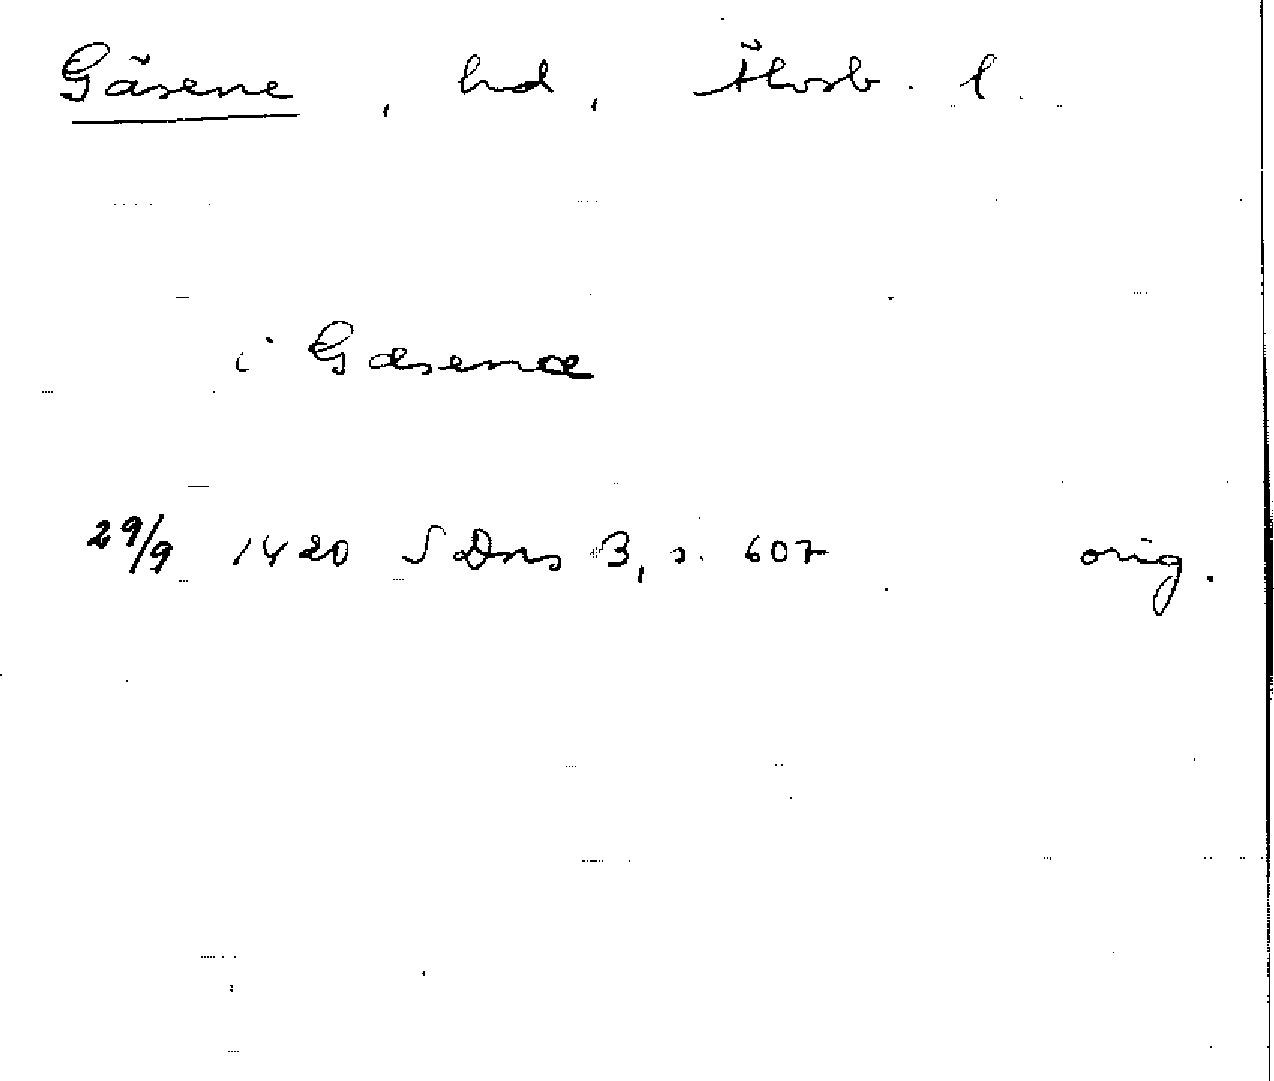 Gäsene, hd, Älvsb. l.
i Gæsenæ
29/9 1420 SDns 3, s. 607 orig.